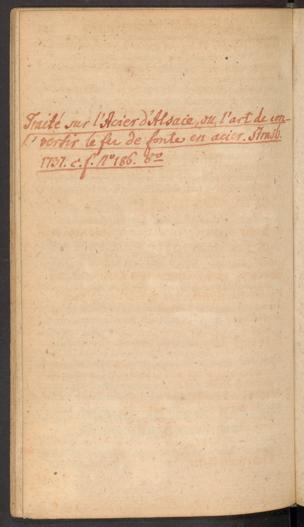 Traité sur l'Acier d'Alsace, ou l'art de con-
vertir le fer de fonte en acier. Strasb.
1737. c. f. N° 186. 8vo